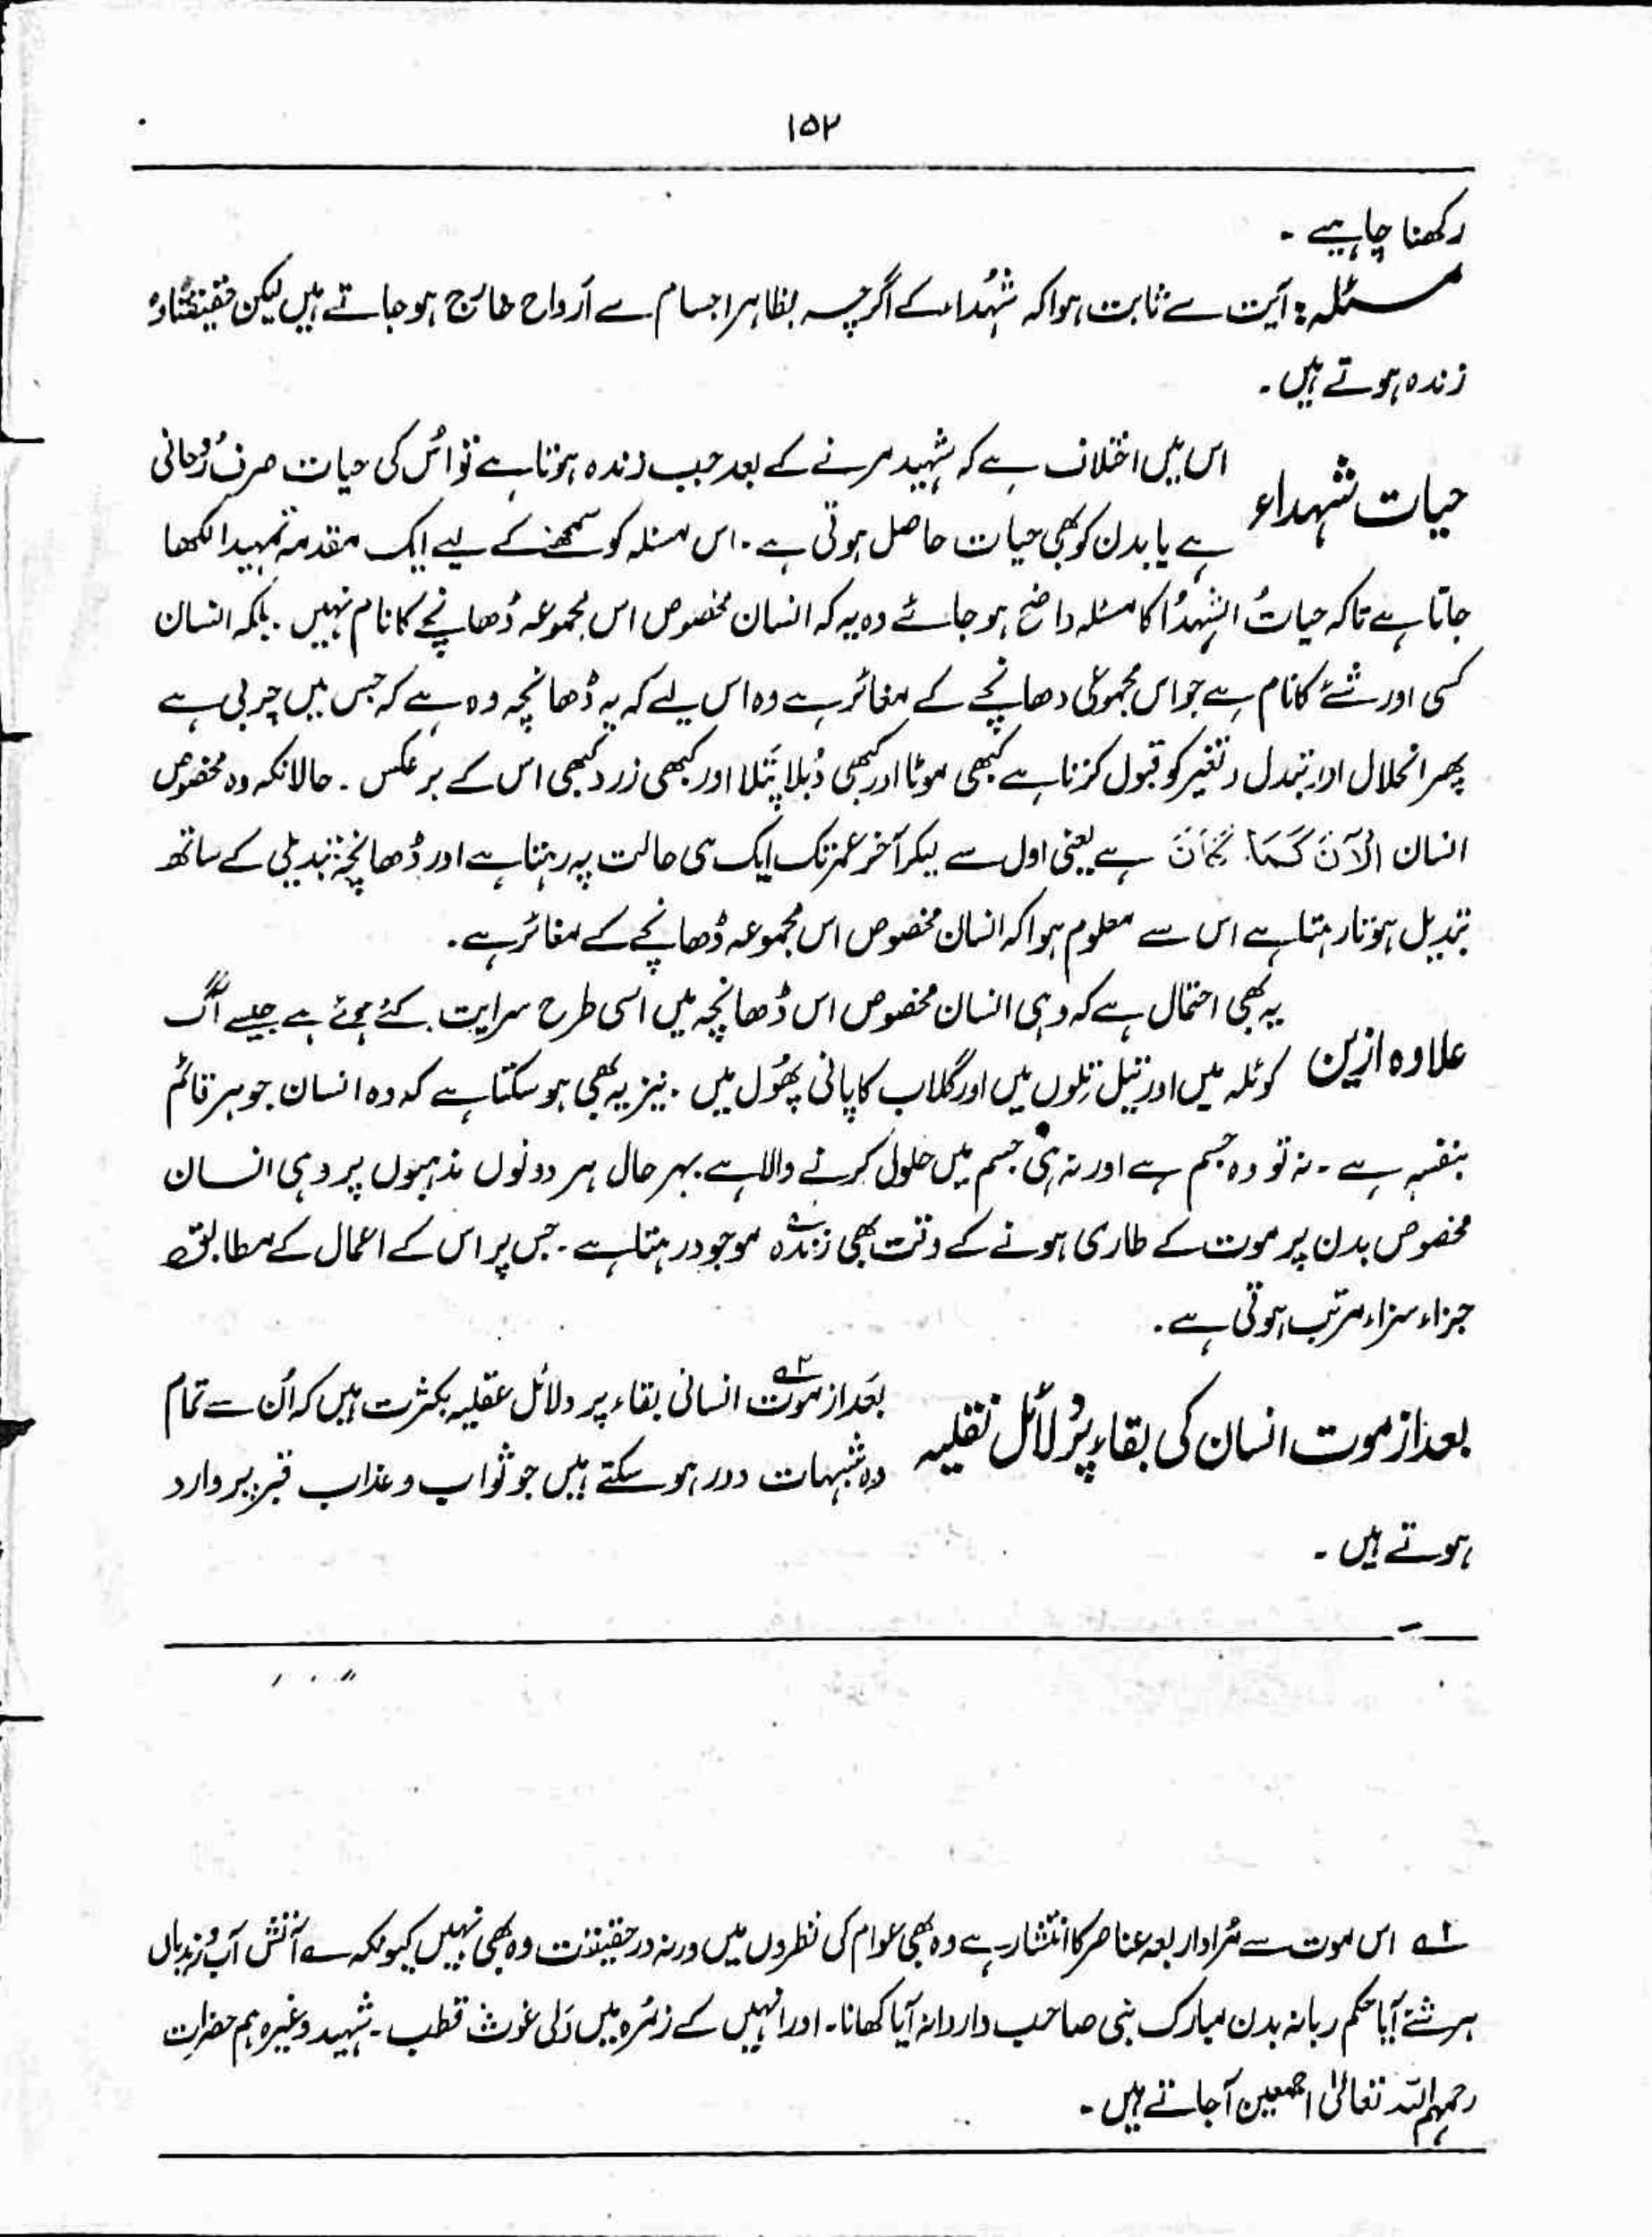 ۱۵۲
رکھنا چاہیے ۔
مسئلہ : آیت سے ثابت ہوا کہ شُہَداء کے اگرچہ بظاہر اجسام سے اَرواح خارج ہو جاتے ہیں لیکن حقیقتًا وہ
زندہ ہوتے ہیں ۔
حیات شہداء
اس میں اختلاف ہے کہ شہید مرنے کے بعد جب زندہ ہوتا ہے تو اُس کی حیات صرف رُوحانی
ہے یا بدن کو بھی حیات حاصل ہوتی ہے ۔ اس مسئلہ کو سمجھنے کے لیے ایک مقدمہ تمہیدا لکھا
جاتا ہے تاکہ حیاتُ الشہداُ کا مسئلہ واضح ہو جائے وہ یہ کہ انسان مخصوص اس مجموعہ ڈھانچے کا نام نہیں ۔ بلکہ انسان
کسی اور شئے کا نام ہے جو اس مجموعی ڈھانچے کے مغائر ہے وہ اس لیے کہ یہ ڈھانچہ وہ ہے کہ جس میں چربی ہے
پھر انحلال اور تبدل و تغیر کو قبول کرتا ہے کبھی موٹا اور کبھی دُبلا پَتلا اور کبھی زرد کبھی اس کے برعکس ۔ حالانکہ وہ مخصوص
انسان اَلْآنَ کَمَا کَانَ ہے یعنی اول سے لیکر آخر عمر تک ایک ہی حالت پہ رہتا ہے اور ڈھانچہ تبدیلی کے ساتھ
تبدیل ہوتا رہتا ہے اس سے معلوم ہوا کہ انسان مخصوص اس مجموعہ ڈھانچے کے مغائر ہے ۔
علاوہ ازین
یہ بھی احتمال ہے کہ وہی انسان مخصوص اس ڈھانچہ میں اسی طرح سرایت کئے ہوئے ہے جیسے آگ
کوئلہ میں اور تیل تِلوں میں اور گلاب کا پانی پھُول میں ۔ نیز یہ بھی ہو سکتا ہے کہ وہ انسان جوہر قائم
بنفسہٖ ہے ۔ نہ تو وہ جسم ہے اور نہ ہی جسم میں حلول کرنے والا ہے بہر حال ہر دونوں مذہبوں پر وہی انسان
مخصوص بدن پر موت کے طاری ہونے کے وقت بھی زندہ موجود رہتا ہے ۔ جس پر اس کے اعمال کے مطابق
جزاء سزاء مرتب ہوتی ہے ۔
بعد از موت انسان کی بقاء پر دلائل نقلیہ
بعد از موت ۲ انسانی بقاء پر دلائل عقلیہ بکثرت ہیں کہ اُن سے تمام
وہ شبہات دور ہو سکتے ہیں جو ثواب و عذاب قبر پر وارد
ہوتے ہیں ۔
۱ اس موت سے مُراد اربعہ عناصر کا انتشار ہے وہ بھی عوام کی نظروں میں ورنہ درحقیقت وہ بھی نہیں کیونکہ ؎ آتش آب
ہر شئے آیا حکم ربانہ بدن مبارک نبی صاحب دا روا نہ آیا کھانا ۔ اور انہیں کے زمُرہ میں وَلی غوث قطب ۔ شہید وغیرہم حضرات
رحمہم اللہ تعالیٰ اجمعین آجاتے ہیں ۔